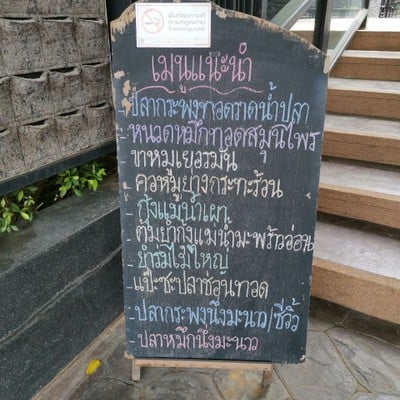 เมนูแนะนำ
- ปลากะพงทอดราดน้ำปลา
- หนวดหมึกทอดสมุนไพร
- ขาหมูเยอรมัน
- คอหมูย่างกระทะร้อน
- กุ้งแม่น้ำเผา
- ต้มยำกุ้งแม่น้ำมะพร้าวอ่อน
- ยำร่มไม้ใหญ่
- แป๊ะซะปลาช่อนทอด
- ปลากระพงนึ่งมะนาว/ซีอิ๊ว
- ปลาหมึกนึ่งมะนาว